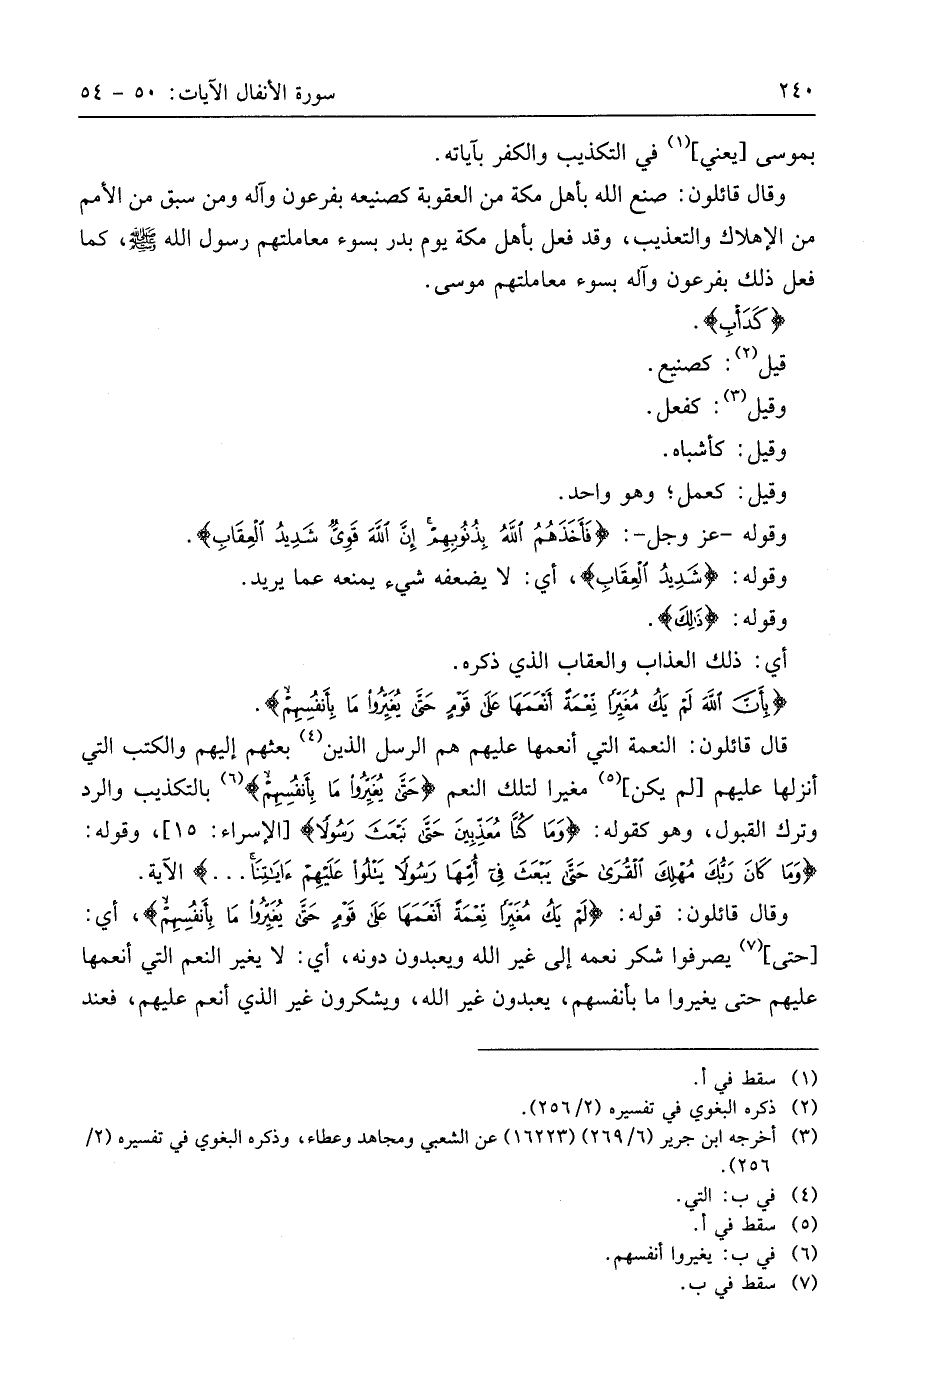 ٢٤٠ سورة الأنفال الآيات: ٥٠ - ٥٤
بموسى [يعني](١) في التكذيب والكفر بآياته.
وقال قائلون: صنع الله بأهل مكة من العقوبة كصنيعه بفرعون وآله ومن سبق من الأمم
من الإهلاك والتعذيب، وقد فعل بأهل مكة يوم بدر بسوء معاملتهم رسول الله ﷺ، كما
فعل ذلك بفرعون وآله بسوء معاملتهم موسى.
﴿كَدَأْبِ﴾.
قيل(٢): كصنيع.
وقيل(٣): كفعل.
وقيل: كأشباه.
وقيل: كعمل؛ وهو واحد.
وقوله -عز وجل-: ﴿فَأَخَذَهُمُ ٱللَّهُ بِذُنُوبِهِمْۚ إِنَّ ٱللَّهَ قَوِيٌّ شَدِيدُ ٱلْعِقَابِ﴾.
وقوله: ﴿شَدِيدُ ٱلْعِقَابِ﴾، أي: لا يضعفه شيء يمنعه عما يريد.
وقوله: ﴿ذَٰلِكَ﴾.
أي: ذلك العذاب والعقاب الذي ذكره.
﴿بِأَنَّ ٱللَّهَ لَمْ يَكُ مُغَيِّرًا نِّعْمَةً أَنْعَمَهَا عَلَىٰ قَوْمٍ حَتَّىٰ يُغَيِّرُوا۟ مَا بِأَنفُسِهِمْۙ﴾.
قال قائلون: النعمة التي أنعمها عليهم هم الرسل الذين(٤) بعثهم إليهم والكتب التي
أنزلها عليهم [لم يكن](٥) مغيرا لتلك النعم ﴿حَتَّىٰ يُغَيِّرُوا۟ مَا بِأَنفُسِهِمْۙ﴾(٦) بالتكذيب والرد
وترك القبول، وهو كقوله: ﴿وَمَا كُنَّا مُعَذِّبِينَ حَتَّىٰ نَبْعَثَ رَسُولًا﴾ [الإسراء: ١٥]، وقوله:
﴿وَمَا كَانَ رَبُّكَ مُهْلِكَ ٱلْقُرَىٰ حَتَّىٰ يَبْعَثَ فِىٓ أُمِّهَا رَسُولًا يَتْلُوا۟ عَلَيْهِمْ ءَايَٰتِنَاۚ...﴾ الآية.
وقال قائلون: قوله: ﴿لَمْ يَكُ مُغَيِّرًا نِّعْمَةً أَنْعَمَهَا عَلَىٰ قَوْمٍ حَتَّىٰ يُغَيِّرُوا۟ مَا بِأَنفُسِهِمْۙ﴾، أي:
[حتى](٧) يصرفوا شكر نعمه إلى غير الله ويعبدون دونه، أي: لا يغير النعم التي أنعمها
عليهم حتى يغيروا ما بأنفسهم، يعبدون غير الله، ويشكرون غير الذي أنعم عليهم، فعند
(١) سقط في أ.
(٢) ذكره البغوي في تفسيره (٢/٢٥٦).
(٣) أخرجه ابن جرير (٦/٢٦٩) (١٦٢٢٣) عن الشعبي ومجاهد وعطاء، وذكره البغوي في تفسيره (٢/
٢٥٦).
(٤) في ب: التي.
(٥) سقط في أ.
(٦) في ب: يغيروا أنفسهم.
(٧) سقط في ب.